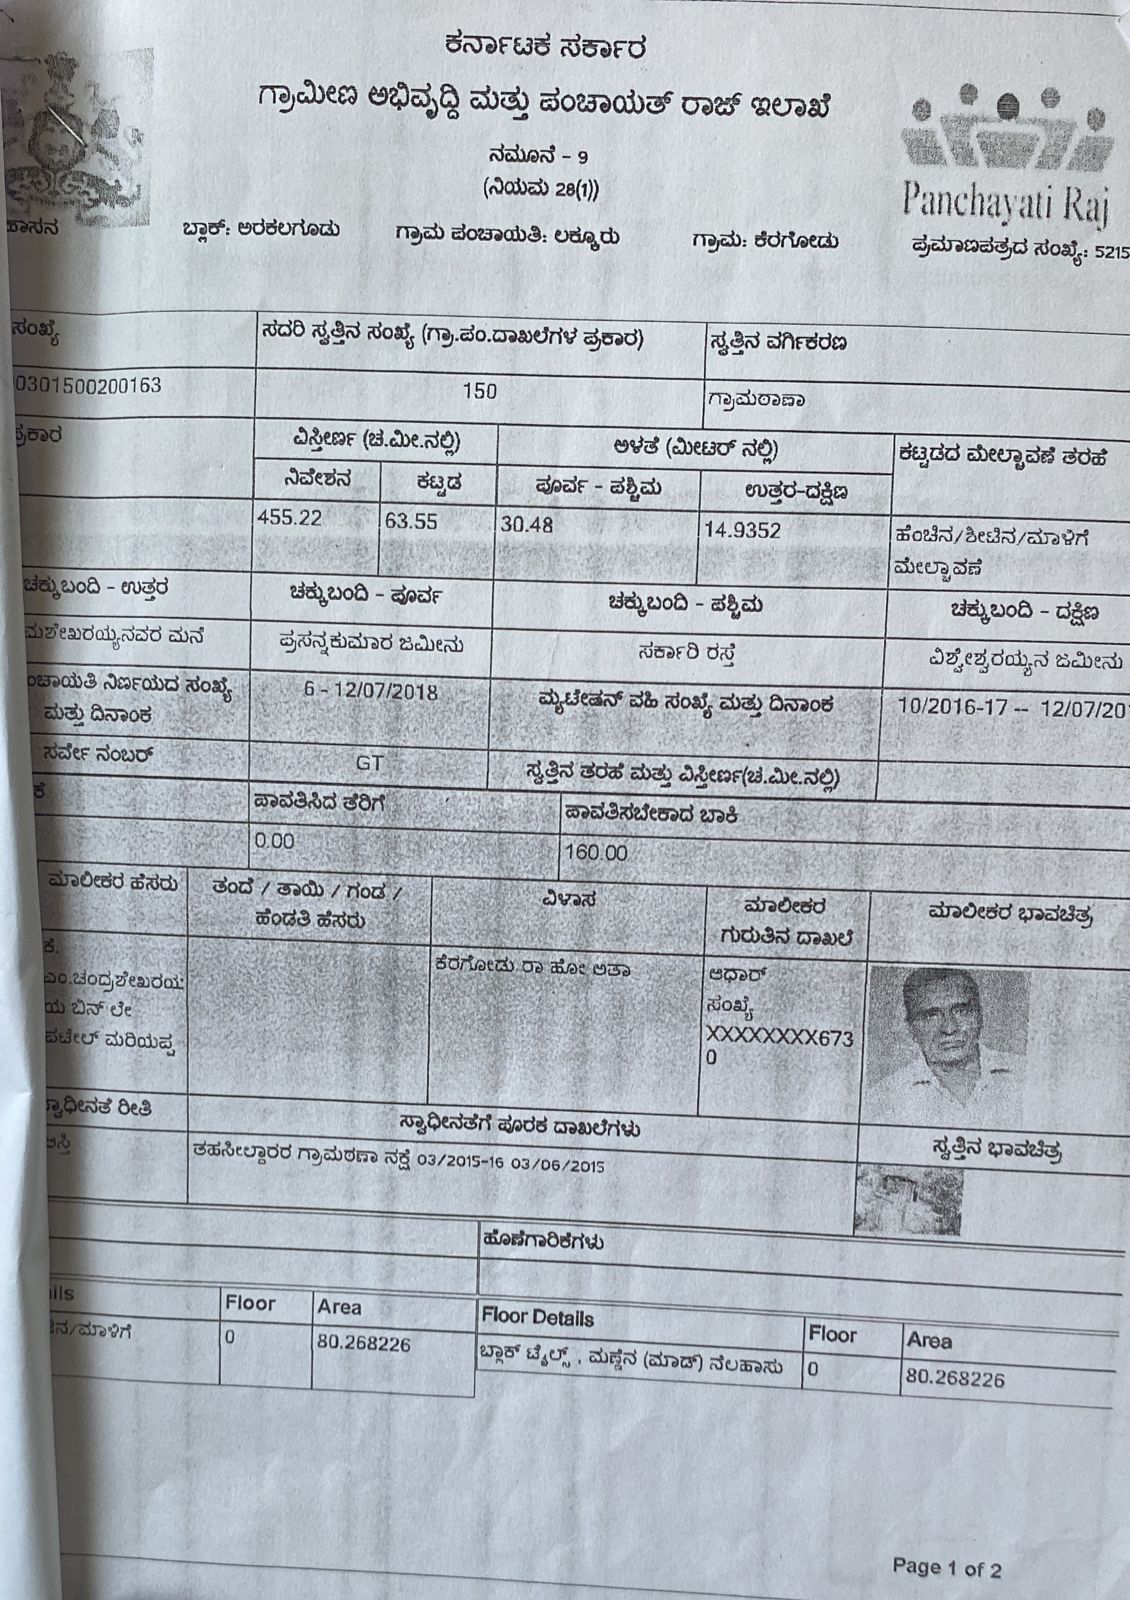 ಕರ್ನಾಟಕ ಸರ್ಕಾರ
ಗ್ರಾಮೀಣ ಅಭಿವೃದ್ದಿ ಮತ್ತು ಪಂಚಾಯತ್ ರಾಜ್ ಇಲಾಖೆ
ನಮೂನೆ - 9
(ನಿಯಮ 28(1))
Panchayati Raj
ಹಾಸನ ಬ್ಲಾಕ್: ಅರಕಲಗೂಡು ಗ್ರಾಮ ಪಂಚಾಯತಿ: ಲಕ್ಕೂರು ಗ್ರಾಮ: ಕೆರಗೋಡು ಪ್ರಮಾಣಪತ್ರದ ಸಂಖ್ಯೆ: 5215
ಸಂಖ್ಯೆ ಸದರಿ ಸ್ವತ್ತಿನ ಸಂಖ್ಯೆ (ಗ್ರಾ.ಪಂ.ದಾಖಲೆಗಳ ಪ್ರಕಾರ) ಸ್ವತ್ತಿನ ವರ್ಗಿಕರಣ
0301500200163 150 ಗ್ರಾಮಠಾಣಾ
ಪ್ರಕಾರ ವಿಸ್ತೀರ್ಣ (ಚ.ಮೀ.ನಲ್ಲಿ) ಅಳತೆ (ಮೀಟರ್ ನಲ್ಲಿ) ಕಟ್ಟಡದ ಮೇಲ್ಚಾವಣೆ ತರಹೆ
ನಿವೇಶನ ಕಟ್ಟಡ ಪೂರ್ವ - ಪಶ್ಚಿಮ ಉತ್ತರ-ದಕ್ಷಿಣ
455.22 63.55 30.48 14.9352 ಹೆಂಚಿನ/ಶೀಟಿನ/ಮಾಳಿಗೆ
ಮೇಲ್ಚಾವಣೆ
ಚಕ್ಕುಬಂದಿ - ಉತ್ತರ ಚಕ್ಕುಬಂದಿ - ಪೂರ್ವ ಚಕ್ಕುಬಂದಿ - ಪಶ್ಚಿಮ ಚಕ್ಕುಬಂದಿ - ದಕ್ಷಿಣ
ಮಶೇಖರಯ್ಯನವರ ಮನೆ ಪ್ರಸನ್ನಕುಮಾರ ಜಮೀನು ಸರ್ಕಾರಿ ರಸ್ತೆ ವಿಶ್ವೇಶ್ವರಯ್ಯನ ಜಮೀನು
ಂಚಾಯತಿ ನಿರ್ಣಯದ ಸಂಖ್ಯೆ 6 - 12/07/2018 ಮ್ಯುಟೇಷನ್ ವಹಿ ಸಂಖ್ಯೆ ಮತ್ತು ದಿನಾಂಕ 10/2016-17 -- 12/07/201
ಮತ್ತು ದಿನಾಂಕ
ಸರ್ವೇ ನಂಬರ್ GT ಸ್ವತ್ತಿನ ತರಹೆ ಮತ್ತು ವಿಸ್ತೀರ್ಣ(ಚ.ಮೀ.ನಲ್ಲಿ)
ಕೆ ಪಾವತಿಸಿದ ತೆರಿಗೆ ಪಾವತಿಸಬೇಕಾದ ಬಾಕಿ
0.00 160.00
ಮಾಲೀಕರ ಹೆಸರು ತಂದೆ / ತಾಯಿ / ಗಂಡ / ವಿಳಾಸ ಮಾಲೀಕರ ಮಾಲೀಕರ ಭಾವಚಿತ್ರ
ಹೆಂಡತಿ ಹೆಸರು ಗುರುತಿನ ದಾಖಲೆ
ಕೆ. ಕೆರಗೋಡು ರಾ ಹೋ ಅತಾ ಆಧಾರ್
ಎಂ.ಚಂದ್ರಶೇಖರಯ ಸಂಖ್ಯೆ
ಯ ಬಿನ್ ಲೇ XXXXXXXX673
ಪಟೇಲ್ ಮರಿಯಪ್ಪ 0
ಸ್ವಾಧೀನತೆ ರೀತಿ ಸ್ವಾಧೀನತೆಗೆ ಪೂರಕ ದಾಖಲೆಗಳು ಸ್ವತ್ತಿನ ಭಾವಚಿತ್ರ
ಆಸ್ತಿ ತಹಸೀಲ್ದಾರರ ಗ್ರಾಮಠಣಾ ನಕ್ಷೆ 03/2015-16 03/06/2015
ಹೊಣೆಗಾರಿಕೆಗಳು
ils Floor Area Floor Details Floor Area
ನ/ಮಾಳಿಗೆ 0 80.268226 ಬ್ಲಾಕ್ ಟೈಲ್ಸ್ , ಮಣ್ಣಿನ (ಮಾಡ್) ನೆಲಹಾಸು 0 80.268226
Page 1 of 2